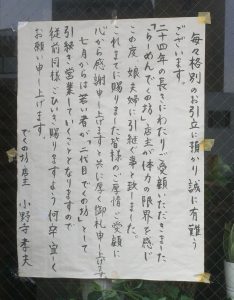 毎々格別のお引立に預かり誠に有難う
ございます。
二十四年の長きにわたりご愛顧いただきました
「らーめんでくの坊」店主が体力の限界を感じ
この度、娘夫婦に引継ぐ事と致しました。
これまでに賜りました皆様のご厚情ご愛顧に
心から感謝申し上げますと共に厚く御礼申し上げます。
七月からは若い者が「二代目でくの坊」として
引続き営業していくこととなりますので
従前同様ごひいき賜りますよう何卒宜しく
お願い申し上げます。
でくの坊店主 小野寺孝夫